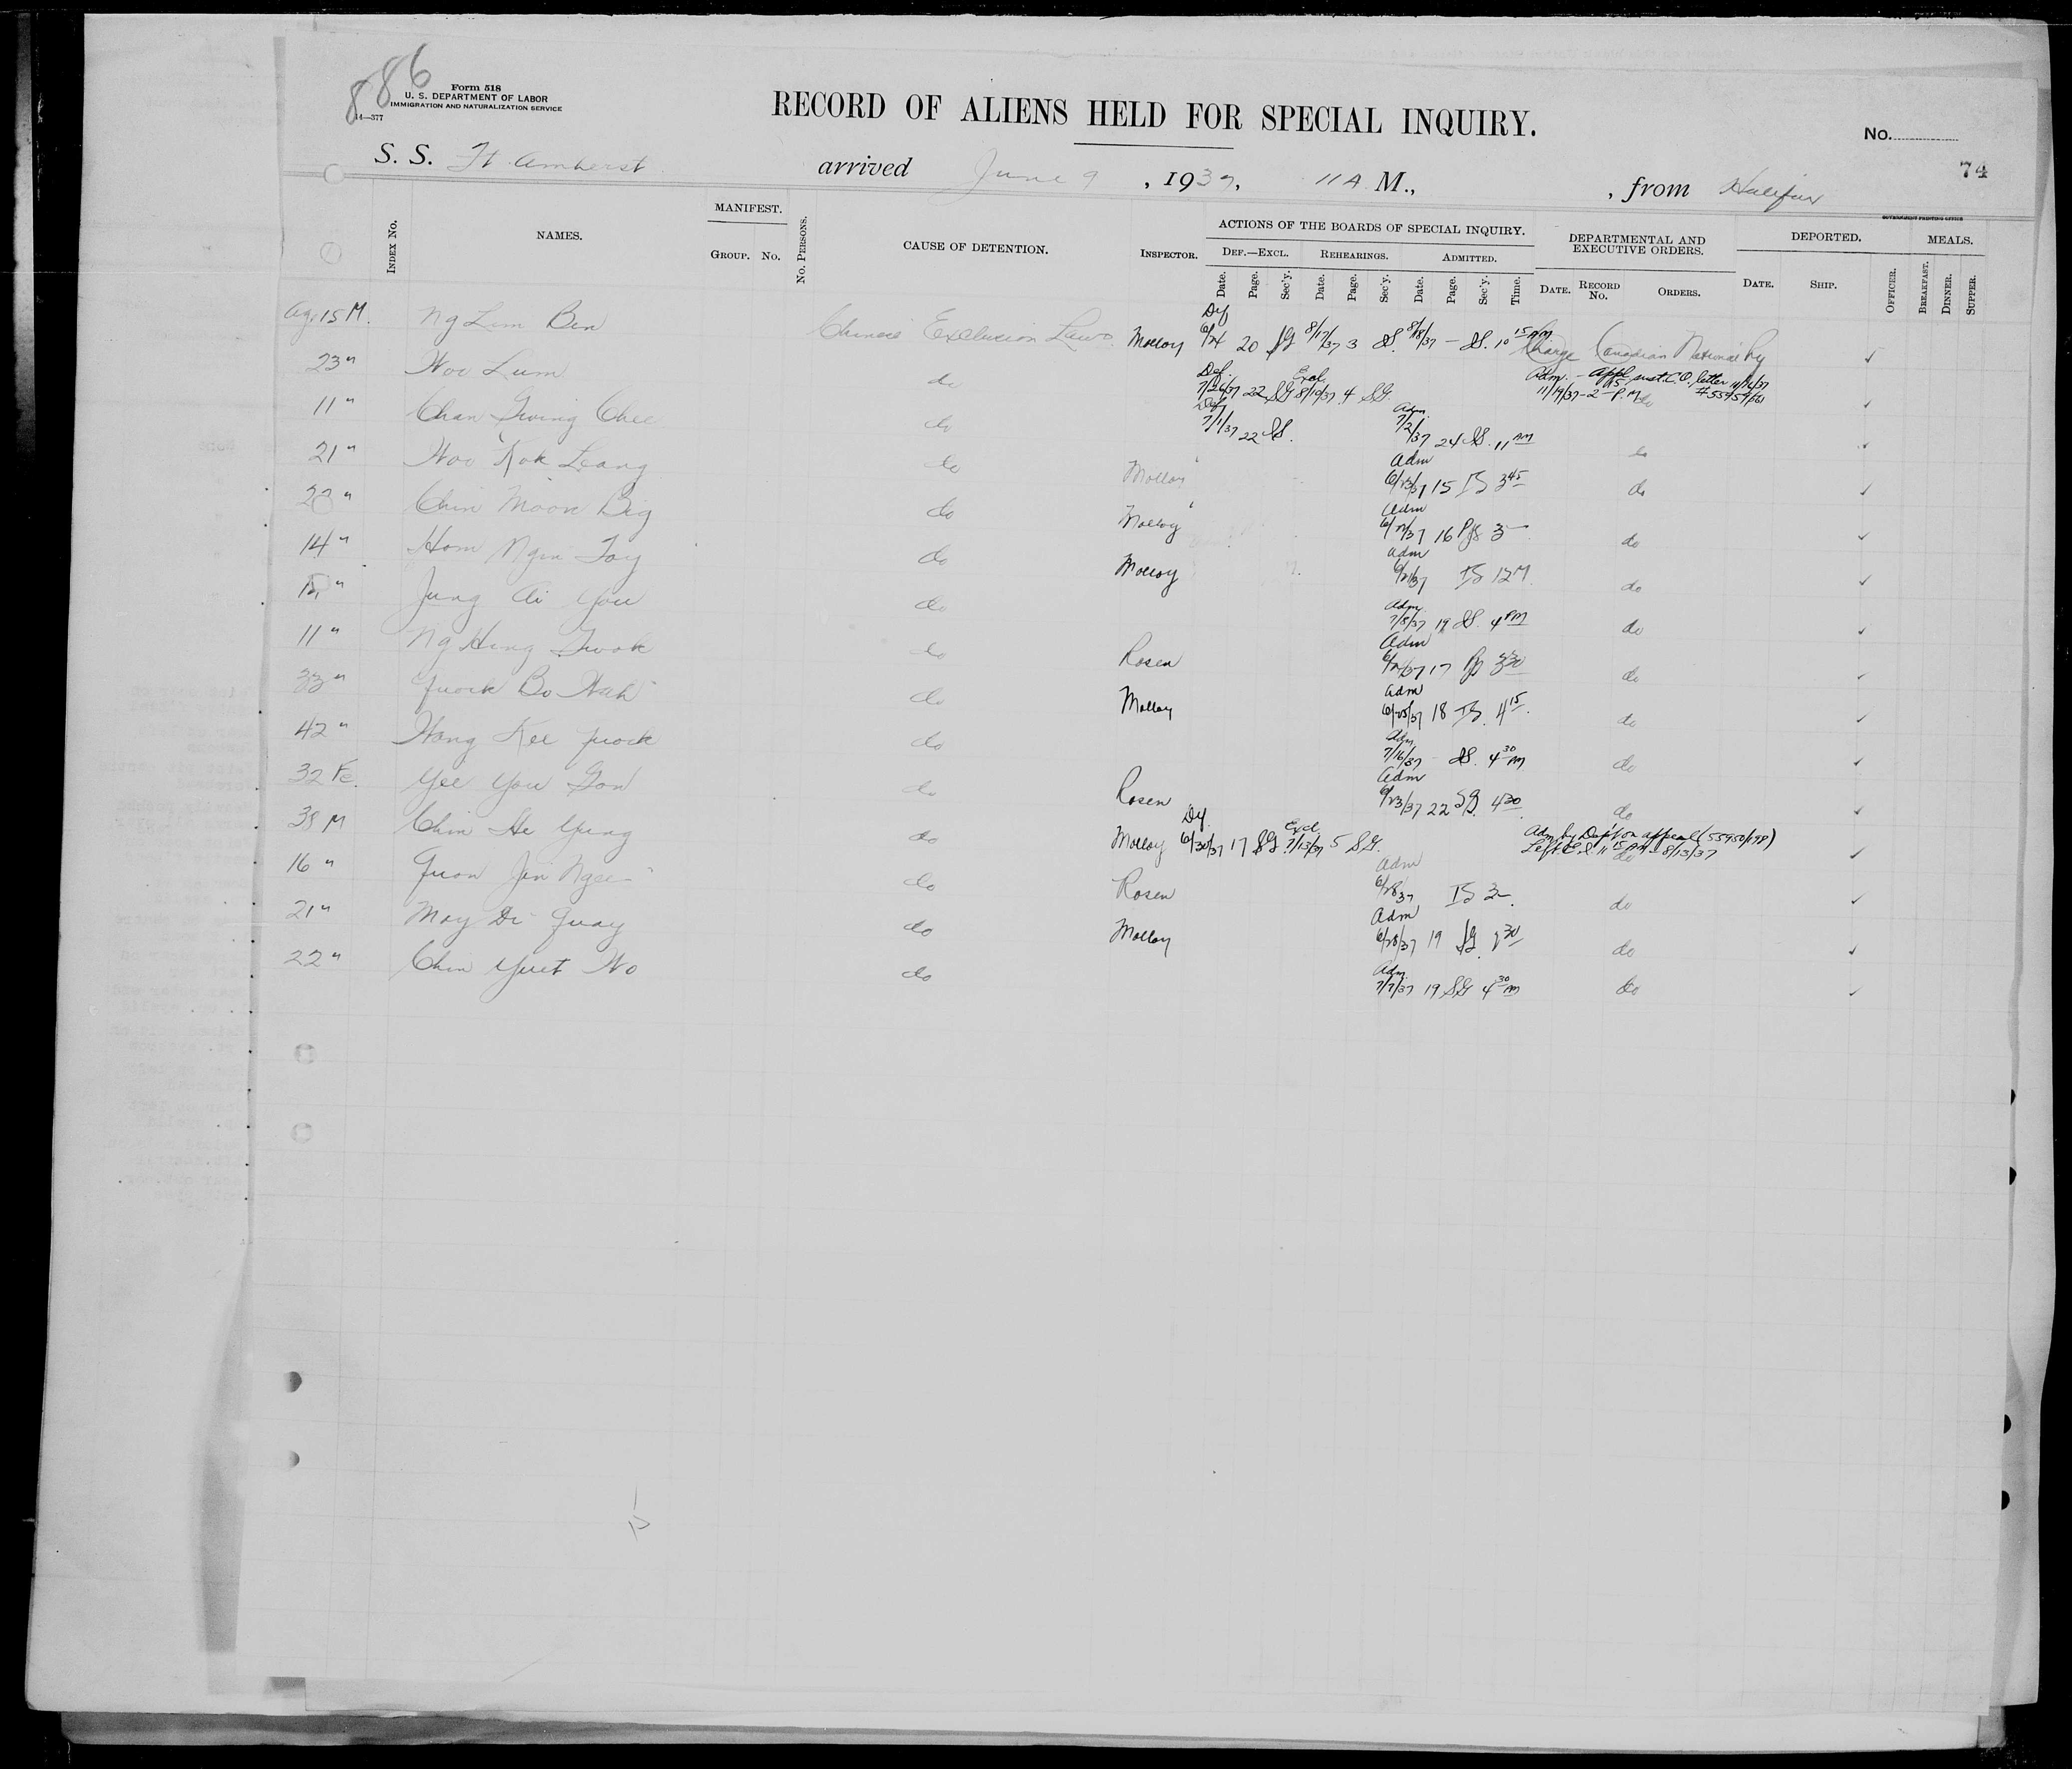 886
Form 518
U. S. DEPARTMENT OF LABOR
IMMIGRATION AND NATURALIZATION SERVICE
14—377
RECORD OF ALIENS HELD FOR SPECIAL INQUIRY.
No.
74
S. S. Ft. Amherst arrived June 9, 1937, 11 A M., , from Halifax
GOVERNMENT PRINTING OFFICE
INDEX No. NAMES. MANIFEST. GROUP. No. No. PERSONS. CAUSE OF DETENTION. INSPECTOR. ACTIONS OF THE BOARDS OF SPECIAL INQUIRY. DEPARTMENTAL AND EXECUTIVE ORDERS. DEPORTED. MEALS.
DEF.—EXCL. REHEARINGS. ADMITTED.
Date. Page. Sec'y. Date. Page. Sec'y. Date. Page. Sec'y. Time. DATE. RECORD No. ORDERS. DATE. SHIP. OFFICER. BREAKFAST. DINNER. SUPPER.
Ag. 15 M. Ng Lim Ben Chinese Exclusion Laws Molloy Def 20 SG 8/17/37 3 S. 8/18/37 — S. 10 15 AM Charge Canadian National Ry
23 " Woo Lum do Def. 7/26/37 22 SG Excl. 8/19/37 4 SG. Adm. - Appl. inst. C.O. letter 11/16/37
11/19/37 - 2 15 P.M. do
11 " Chan Gwing Chee do Def 7/1/37 22 S. Adm. 7/2/37 24 S. 11 AM do
21 " Woo Kok Leang do Molloy Adm 6/23/37 15 IS 3 45 do
22 " Chin Moon Big do Molloy Adm 16 3 — do
14 " Hom Ngin Toy do Molloy Adm 6/21/37 IS 12 M. do
" Jung Ai You do Adm. 7/8/37 19 S. 4 PM do
11 " Ng Hing Gwok do Rosen Adm 17 3 30 do
33 " Quock Bo Wah do Molloy Adm 6/25/37 18 IS. 4 15 do
42 " Wong Kee Quock do Adm. 7/16/37 — S. 4 30 PM do
32 Fe. Yee You Gon do Rosen Adm 6/23/37 22 SG 4 30 do
38 M Chin He Yung do Molloy Def. 6/30/37 17 SG Excl. 7/13/37 5 SG. Adm. by Dept on appeal (55950/198)
Left E.I. 11 15 AM - 8/13/37 do
16 " Quon Jin Ngee do Rosen Adm 6/28/37 IS 3 — do
21 " Moy Di Quay do Molloy Adm 6/28/37 19 SG 1 30 do
22 " Chin Yuet Wo do Adm. 7/7/37 19 SG 4 30 PM do